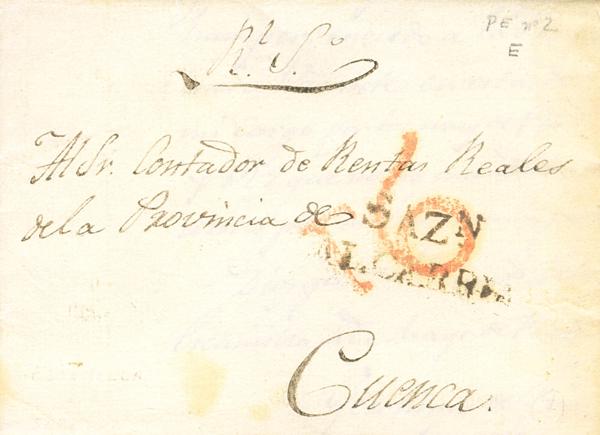 PE nº2
E
Rl. So
Al Sr. Contador de Rentas Reales
de la Provincia de
SAZN
ALCARRIA
Cuenca.